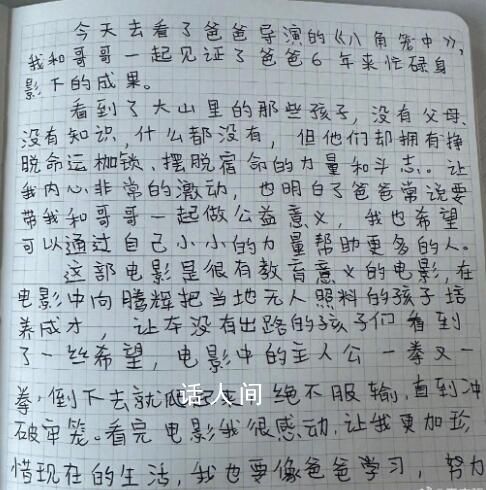 今天去看了爸爸导演的《八角笼中》，
我和哥哥一起见证了爸爸6年来忙碌身
影下的成果。
看到了大山里的那些孩子，没有父母、
没有知识，什么都没有，但他们却拥有挣
脱命运枷锁、摆脱宿命的力量和斗志。让
我内心非常的激动，也明白了爸爸常说要
带我和哥哥一起做公益意义，我也希望
可以通过自己小小的力量帮助更多的人。
这部电影是很有教育意义的电影，在
电影中向腾辉把当地无人照料的孩子培
养成才，让本没有出路的孩子们看到
了一丝希望，电影中的主人公一拳又一
拳，倒下去就爬起来，绝不服输，直到冲
话人间
破牢笼。看完电影我很感动，让我更加珍
惜现在的生活，我也要像爸爸学习，努力